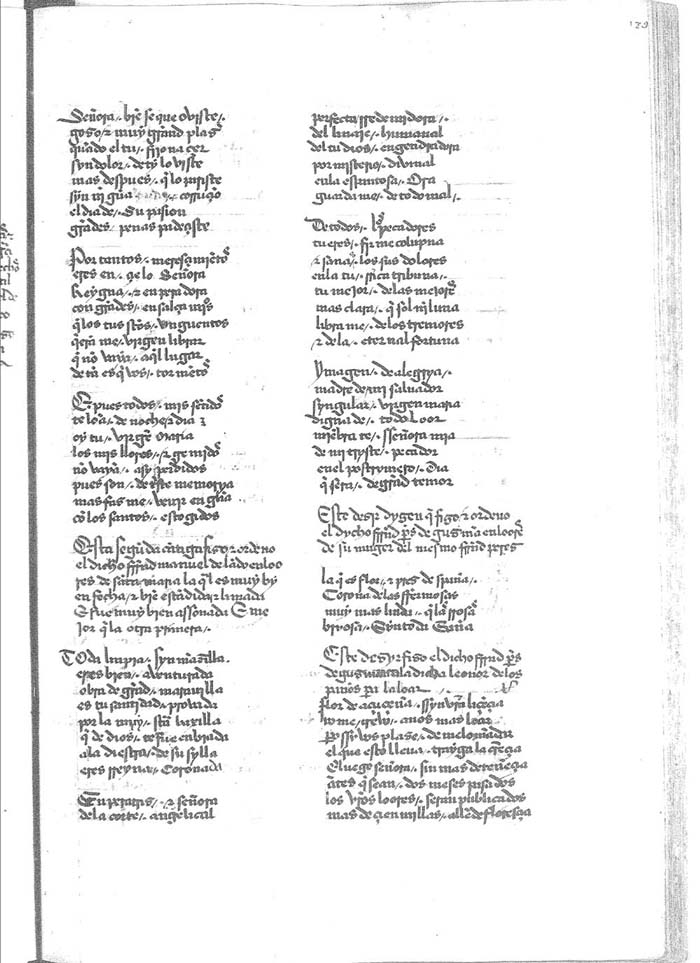 129
Señora / bie se que oviste /
gozo / & muy grand plaz
quãdo el tu / fijo naçer
syn dolor / de ty lo viste
mas despues / q̃ lo pariste
syn
el dia de / Su pasion
grãdes / penas padeçiste
Por tantos / mereçimiẽtos
eres en / çielo Señora
Reyna / & enperadora
con grãdes / ensalçamiẽtos
q̃ los tus sãtos / vnguentos
q̃erã me / virgen librar
q̃ nõ vaya / aq̃l lugar
de tã esq̃vos / tormẽtos
E pues todos / mis sẽtidos
te loã / de noche & dia
oy tu / virgẽ Maria
los mis llores / & gemidos
nõ vayã / asy perdidos
pues son / de este memorya
mas fas me / venir en glia
cõ los santos / escogidos
Esta segũda cãtiga fiso & ordeno
el dicho ferrãd manuel de lãdo en loo
res de sãta maria la q̃l es muy bie
en fecha / & biẽ estãdida & limada
E fue muy bien assonada E me
jor q̃ la otra primera /
TOda linpia / syn mãzilla.
eres bien / aventurada
obra de grãd / maravilla
es tu santidad / provada
por la muy / sãta baxilla
q̃ de dios / te fue enbiada
a la diestra / de su sylla
eres rreyna / Coronada
Enperatris / & señora
de la corte / angelical
perfecta rredemidora /
del linaje / humanal
del tu dios / engendradora
por misterio / divinal
en la espantosa / Ora
guarda me / de todo mal /
De todos / los pecadores
tu eres / firme colupna
& sana / los sus dolores
en la tu / rrica tribuna /
tu mejor / de las mejores
mas clara / q̃ sol nĩ luna
libra me / de los tremores
& de la / eternal fortuna
Ymagen / de alegrya /
madre de mi salvador
syngular / virgen maria
digna de / todo loor
miẽbra te / sseñora mia
de mi tryste / pecador
en el postrymero / Dia
q̃ sera / de grãd temor
Este desir dyzen q̃ fizo & ordeno
el dycho ferrãd ps de gusmã en loores
de su muger del mesmo ferrãd peres
la q̃ es flor / & pres de spaña /
Corona de las ffermosas
muy mas linda / q̃ la rrosa
biva / Syn toda Saña
Este desyr fiso el dicho ferrãd ps
de gusman a la dicha leonor de los
paños por la loar
flor de açuçena / ssyn vrã liçẽçia
años mas loar
Po si vos plase / de me lo mãdar
el que esto lleva / trayga la
E luego señora / sin mas detenẽçia
ãtes q̃ sean / dos meses pasados
los vros loores / seran publicados
mas de çien millas / allẽ de floreçia